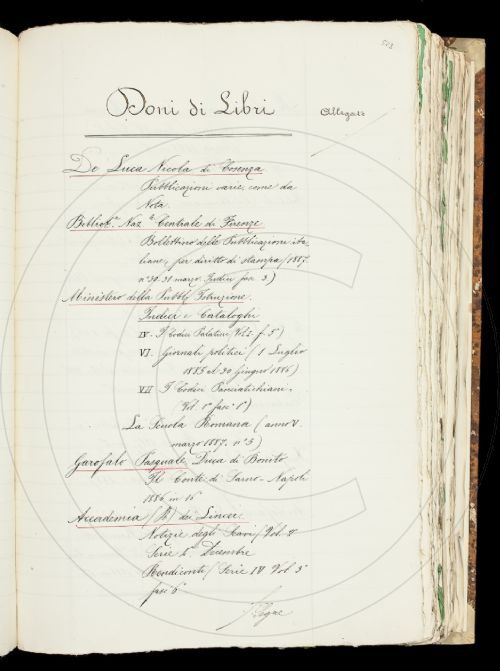 503
Doni di Libri
Allegato
De Luca Nicola di Cosenza
Pubblicazioni varie come da
Nota.
Bibliot.ª Naz.ª Centrale di Firenze
Bollettino delle Pubblicazione ita-
liane, per diritto di stampa (1887
nº 30. 31 marzo. Indici fasc 3)
Ministero della Pubbl. Istruzione.
Indici e Cataloghi
IV - I Codici Palatini Vol. I. f. 5º)
VI. Giornali politici (1 Luglio
1885 al 30 Giugno 1886)
VII I Codici Panciatichiani.
(Vol. 1º fasc. 1º)
La Scuola Romana (anno V.
marzo 1887. nº 5)
Garofalo Pasquale Duca di Bonito
Il Conte di Sarno - Napoli
1886 in 16
Accademia (R) dei Lincei.
Notizie degli Scavi (Vol. 2
Serie 4ª Dicembre
Rendiconti (Serie IV Vol 3
fasc 6
Segue